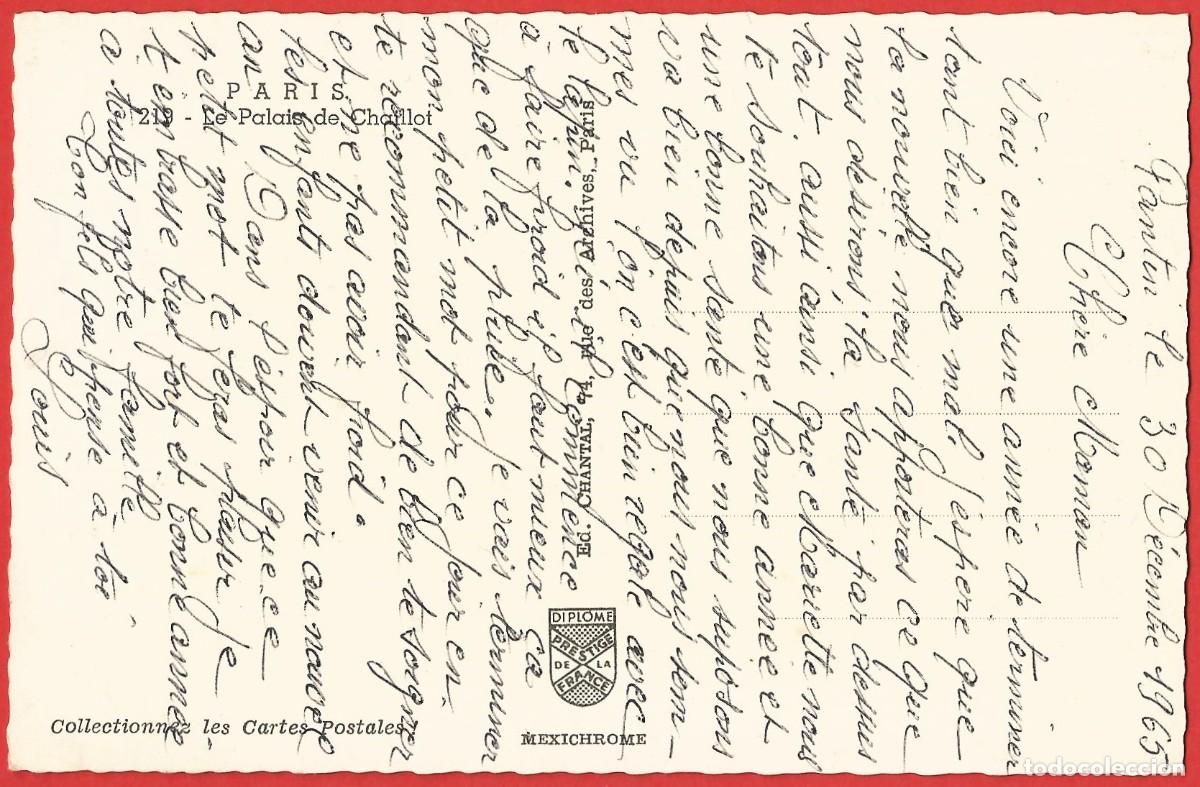 Pantin le 30 Décembre 1965
Chère Maman
Voici encore une année de terminer
tant bien que mal, j'espere que
la nouvelle nous apporteras ce que
nous desirons, la santé par dessus
tout, aussi ainsi que Mariette nous
te souhaitons une bonne année et
une bonne santé que nous suposons
va bien depuis que nous nous som-
mes vu, on c'est bien régalé avec
le lapin. Ici il commence
à faire froid il faut mieux ça
que de la pluie, je vais terminer
mon petit mot pour ce jour en
te recommandant de bien te soigner
et ne pas avoir froid.
les enfants doivent venir au nouvel
an Dans l'espoir que ce
petit mot te feras plaisir je
t'embrasse bien fort et bonne année
a toutes notre famille
Ton fils qui pense à toi
Louis
PARIS
219 - Le Palais de Chaillot
Ed. CHANTAL, 74, Rue des Archives, Paris
DIPLOME
PRESTIGE
DE LA
FRANCE
MEXICHROME
Collectionnez les Cartes Postales
todocoleccion